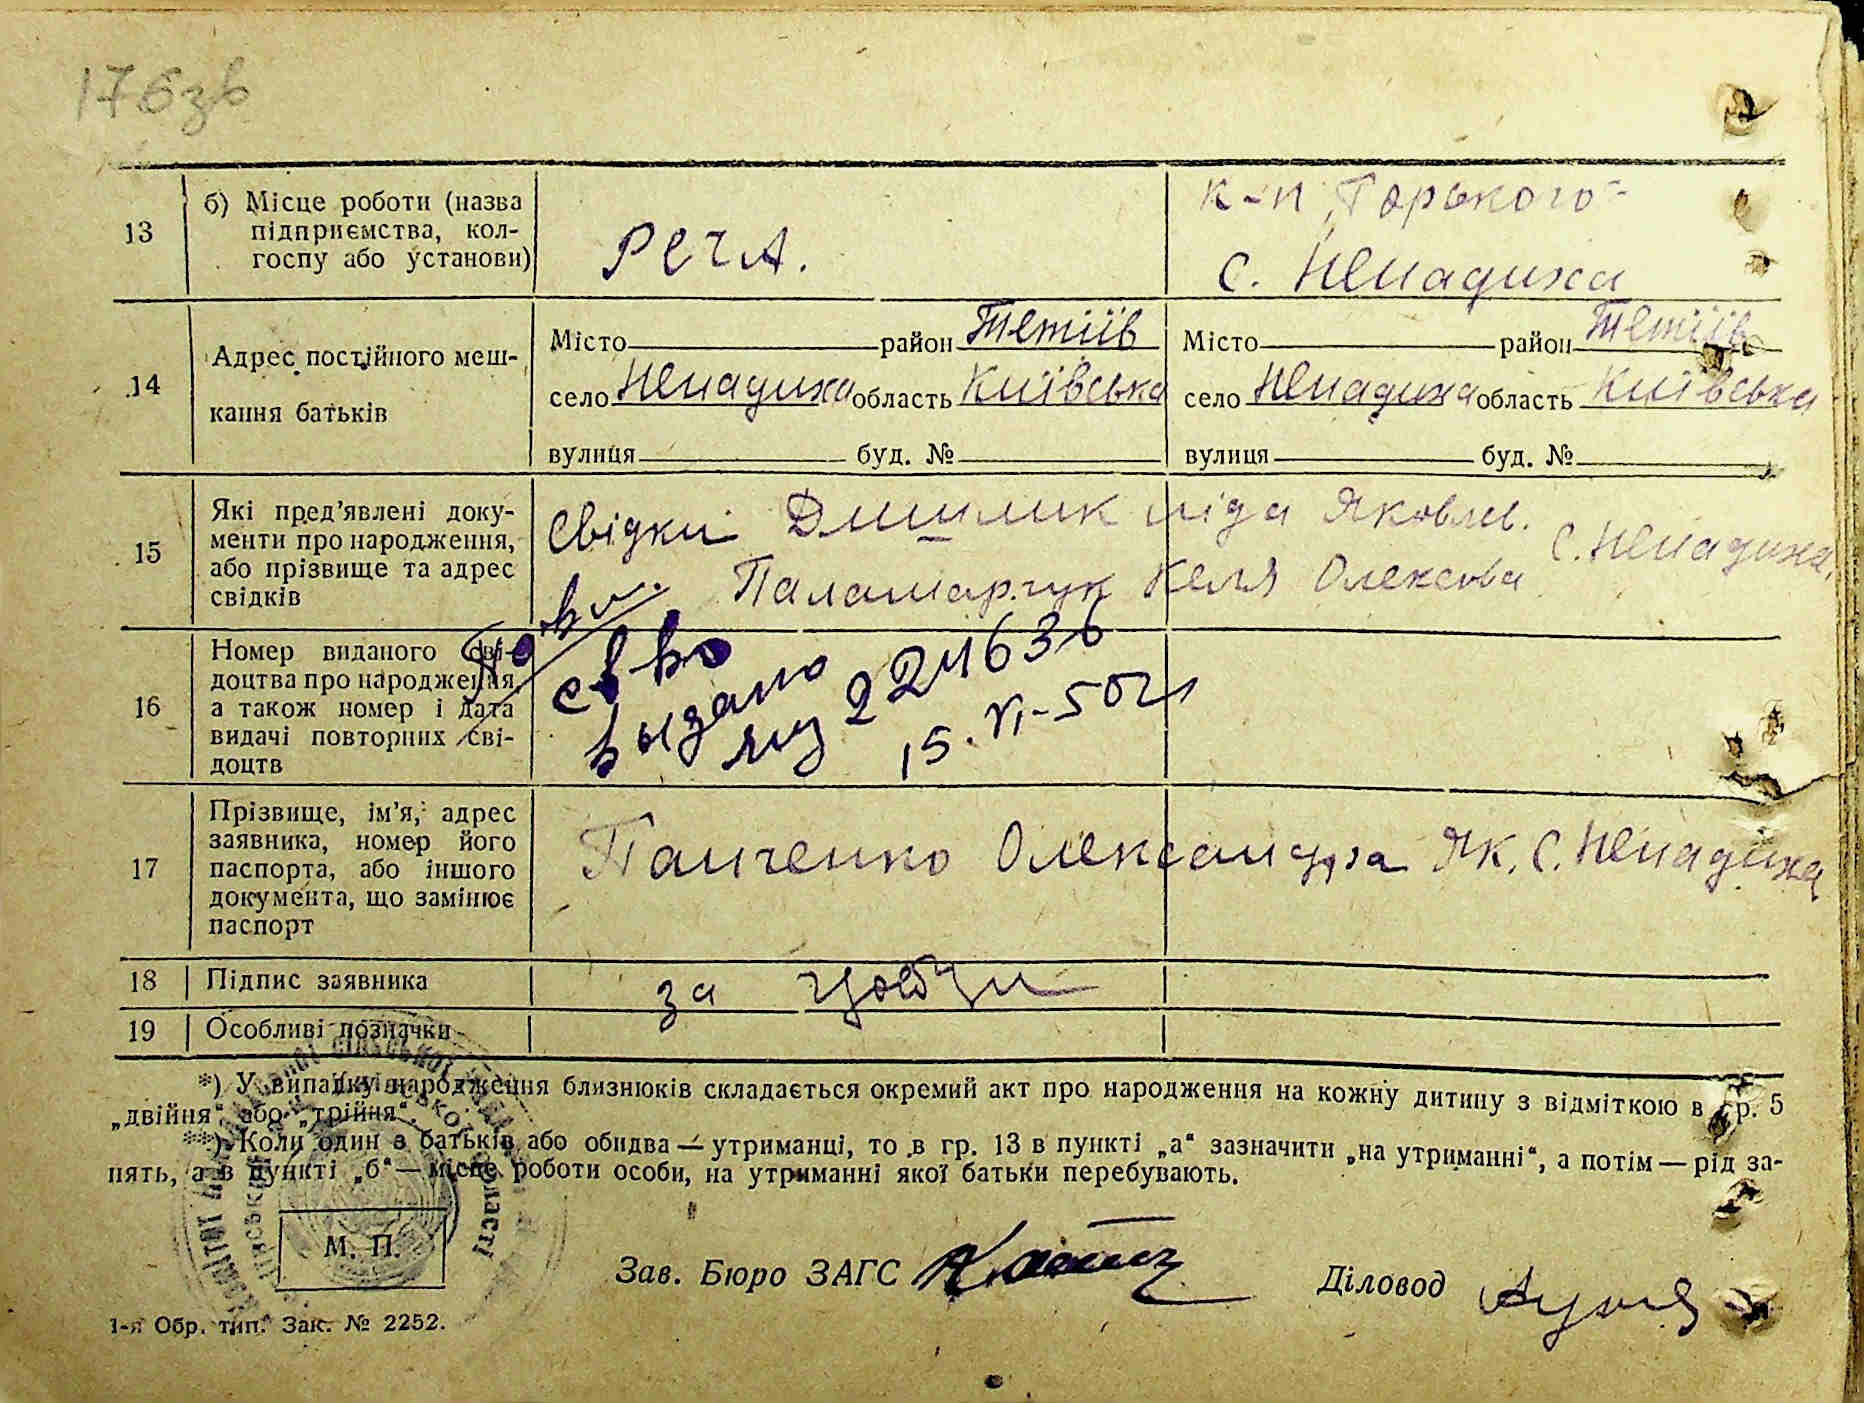 176зв
13
б) Місце роботи (назва
підприємства, кол-
госпу або установи)
РСЧА.
к-п Горького
с. Ненадиха
14
Адрес постійного меш-
кання батьків
Місто район Тетіїв
село Ненадиха область Київська
вулиця буд. №
Місто район Тетіїв
село Ненадиха область Київська
вулиця буд. №
15
Які пред’явлені доку-
менти про народження,
або прізвище та адрес
свідків
Свідки Яковлев.
Паламарчук Олексова с. Ненадиха.
16
Номер виданого сві-
доцтва про народження,
а також номер і дата
видачі повторних сві-
доцтв
св во
выдано
224636
15.VI-50г
17
Прізвище, ім’я, адрес
заявника, номер його
паспорта, або іншого
документа, що замінює
паспорт
Панченко Олександра Як. с. Ненадиха
18
Підпис заявника
за
19
Особливі позначки
*) У випадку народження близнюків складається окремий акт про народження на кожну дитину з відміткою в гр. 5
„двійня“ або „трійня“.
**) Коли один з батьків або обидва — утриманці, то в гр. 13 в пункті „а“ зазначити „на утриманні“, а потім — рід за-
нять, а в пункті „б“ — місце роботи особи, на утриманні якої батьки перебувають.
М. П.
Зав. Бюро ЗАГС
Діловод
1-я Обр. тип. Зак. № 2252.